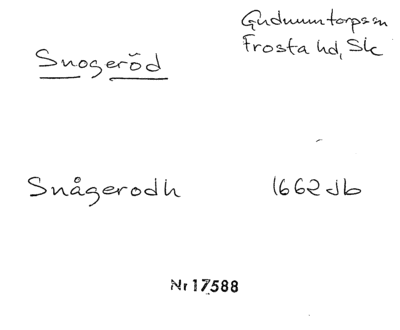 Gudmuntorpssn
Snogeröd Frosta hd, Sk
Snågerodh 1662 Jb
Nr 17588